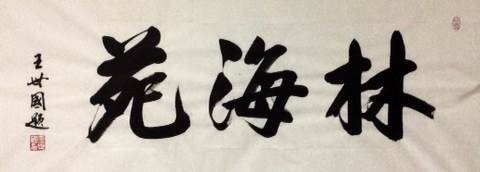 林海苑
王世國題